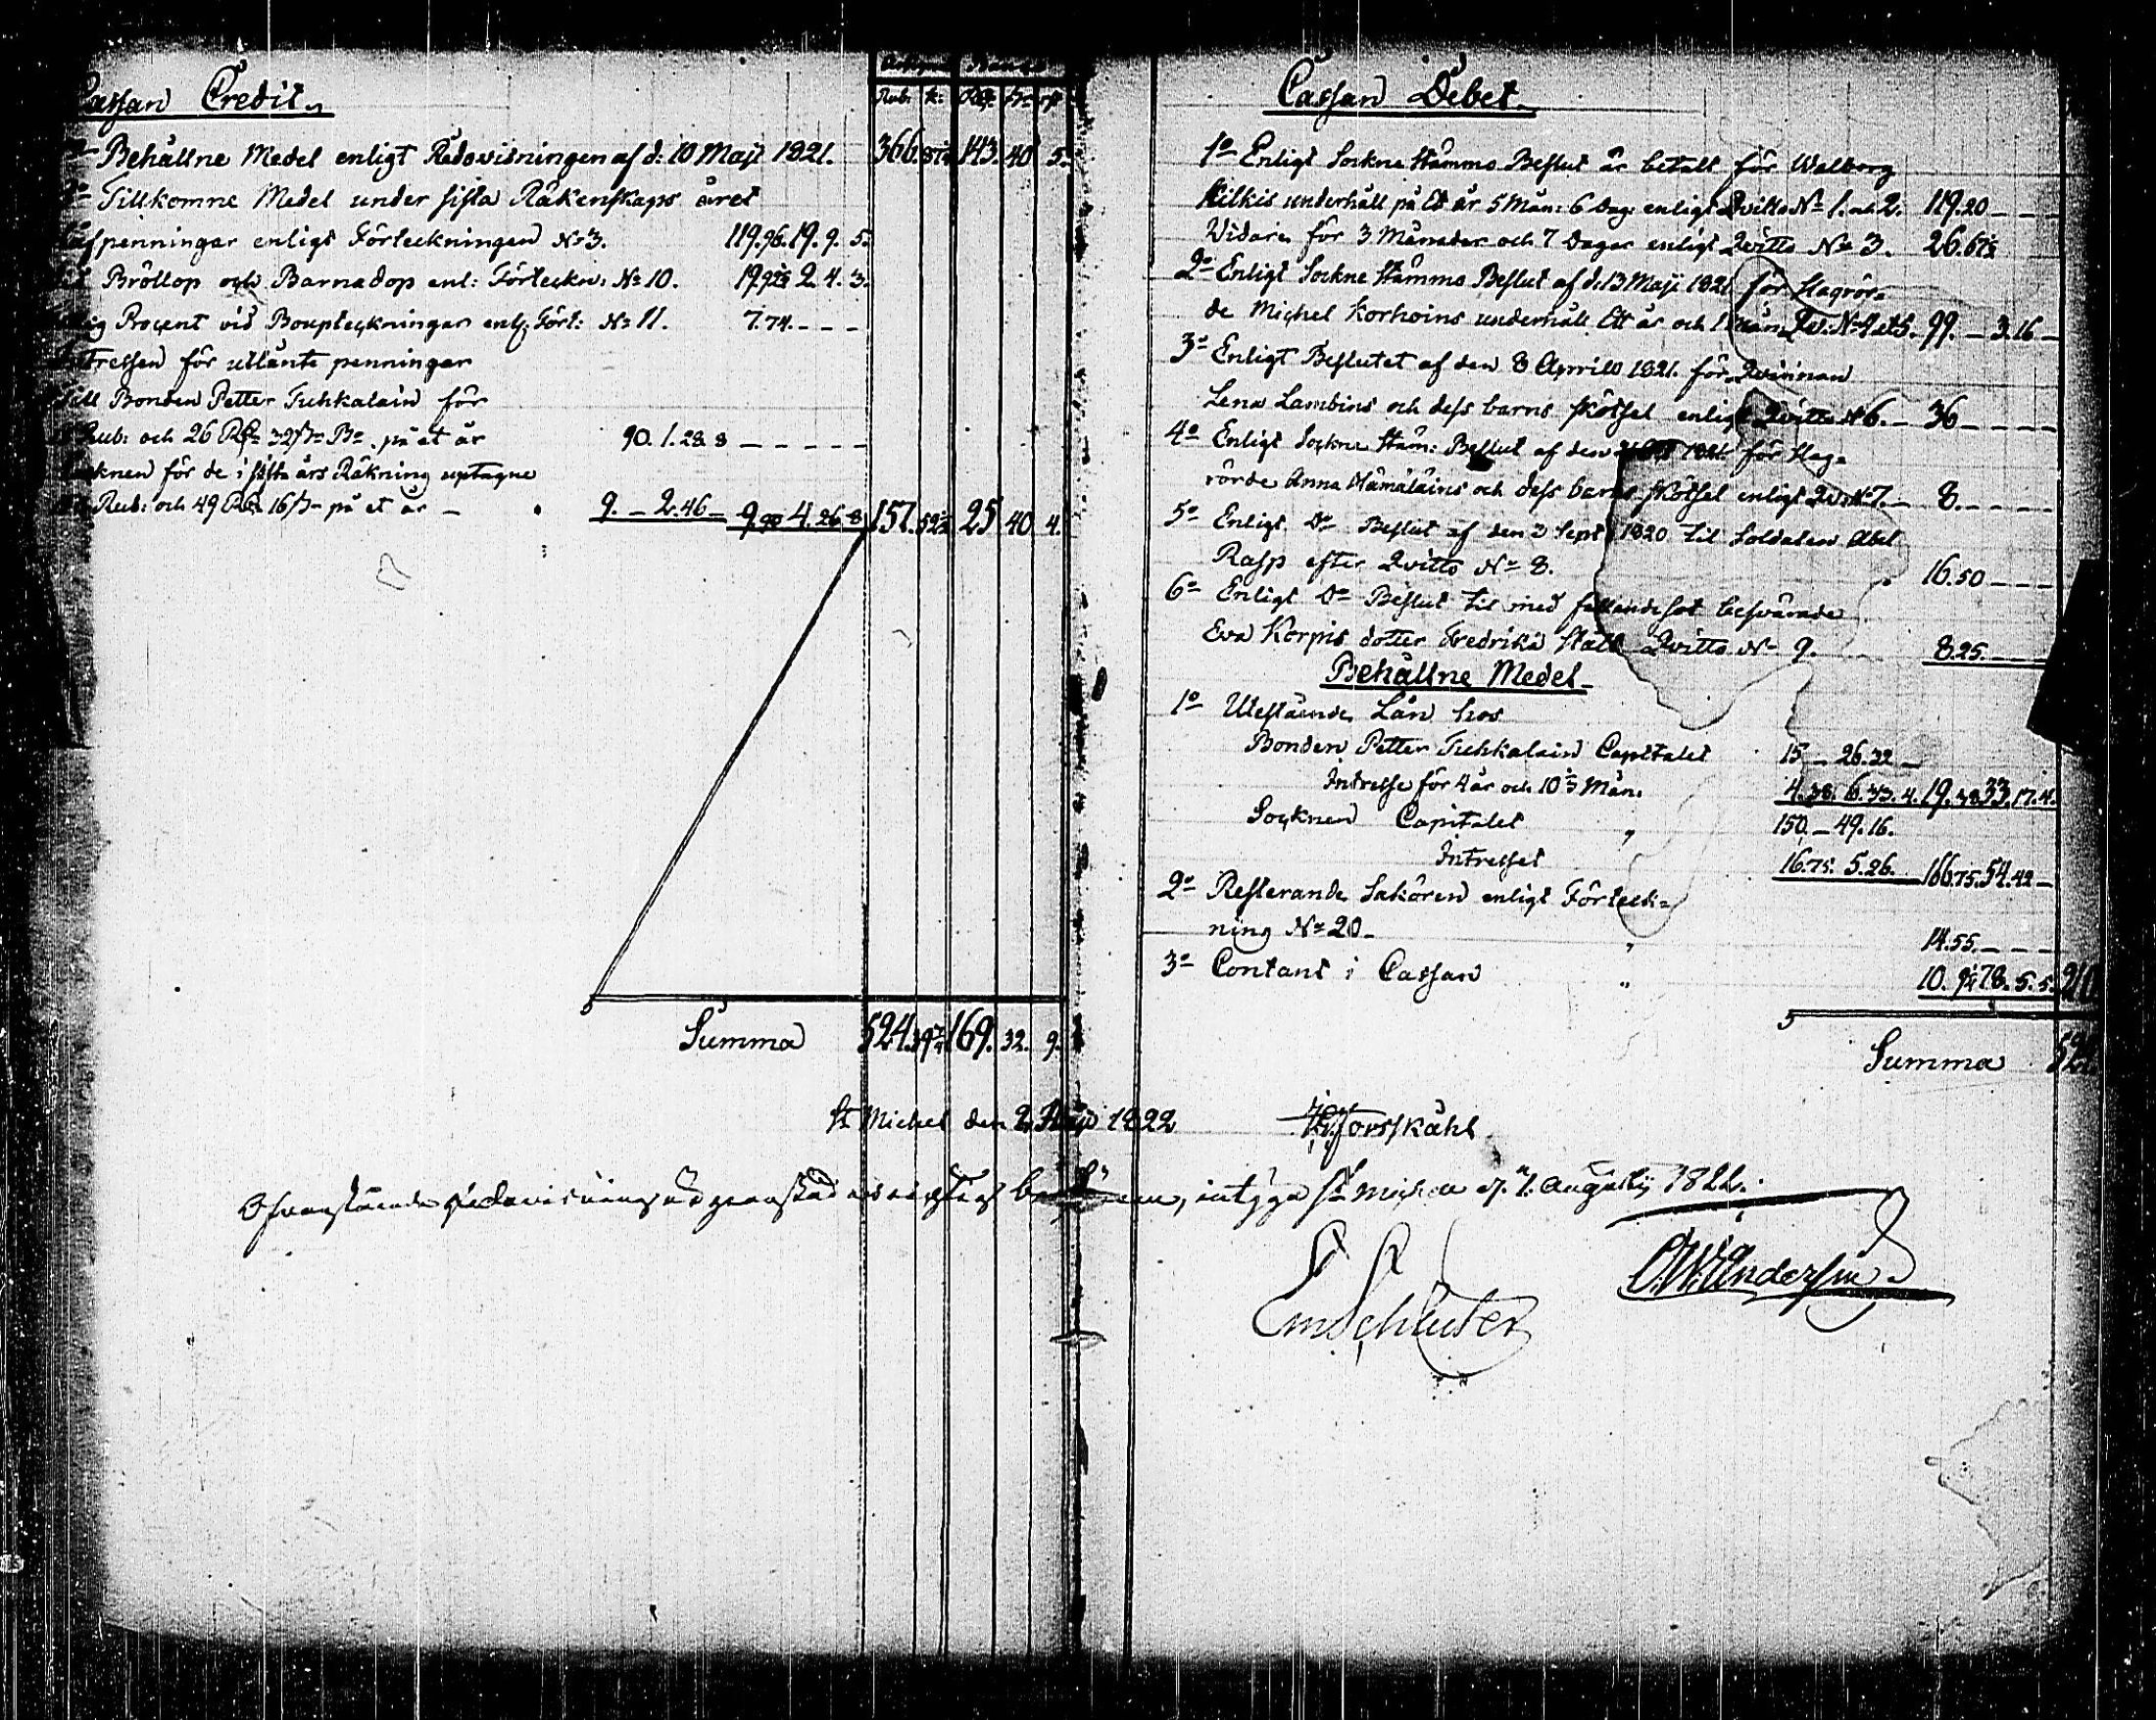 Cassan Credit
Behållne Medel enligt Redovisningen af d: 10 Maji 1821. 366. 143. 40 5.
Tillkomne Medel under sista Räkenskaps året
penningar enligt Förteckningen No 3. 119.96. 19. 9. 5.
Bröllop och Barnadop enl: Förteckn: No 10. 19.92 2. 4. 3.
Procent vid Bouptekningar enl: Fört: No 11. 7.74. - - -
Intressen för utlånte penningar
Till Bonden Petter Tuhkalain för
Rub: och 26 Rd 32 på et år 90. 1. 28 8 - - - -
Socknen för de i sista års Räkning uptagne
Rub: och 49 Rd 16 på et år - 9. - 2.46 - 9.90 4.26 8 157. 25 40 4.
Summa 524. 169. 32. 9.
Rub. k:
Cassan Debet
1o Enligt Sockne Stämmo Beslut är betalt för Walborg
Kilkis underhåll på Et år 5 Mån: 6 Dag: enligt Qvitto No 1. och 2. 119.20 - - -
Vidare för 3 Månader och 7 Dagar enligt Qvitto No 3. 26.67
2o Enligt Sockne Stämmo Beslut af d: 13 Maji 1821 för Slagrör=
de Michel Korhoins underhåll Ett år och 1 mån: Qv: No 4 et 5. 99. - 3.16 -
3o Enligt Beslutet af den 8 Aprill 1821. för Qvinnan
Lena Lambins och dess barns skötsel enligt Qvitto No 6. - 36 - - - -
4o Enligt Sockne Stäm: Beslut af den 1821 för Slag=
rörde Anna Hämäläins och dess barns skötsel enligt Qv: No 7. - 8. - - - -
5o Enligt Do Beslut af den 3 Sept 1820 til Soldaten Abel
Rasp efter Qvitto No 8. 16.50 - - -
6o Enligt Do Beslut til med fallandesot besvärade
Eva Korpis dotter Fredrika Qvitto No 9. 8.25. - - -
Behållne Medel
1o Utestående Lån hos
Bonden Petter Tuhkalain Capitalet 15 - 26.32 -
Intresse för 4 år och 10 Mån: 4.38. 6.33. 4. 19.38 33. 17. 4.
Socknen Capitalet " 150. - 49. 16.
Intresset 16.75. 5.26. 166.75. 54. 42 -
2o Resterande Sakören enligt Förteck=
ning No 20 - " 14.55. - - -
3o Contant i Cassan " 10. 78. 5. 5. 210
Summa 524
St Michel den 2 Maji 1822
Forsskåhl
Ofvanstående Redovisning är granskad och rigtigt befunnen, intyga St Michel d. 7. Augusti 1822.
Em Schluter
C.W. Andersin